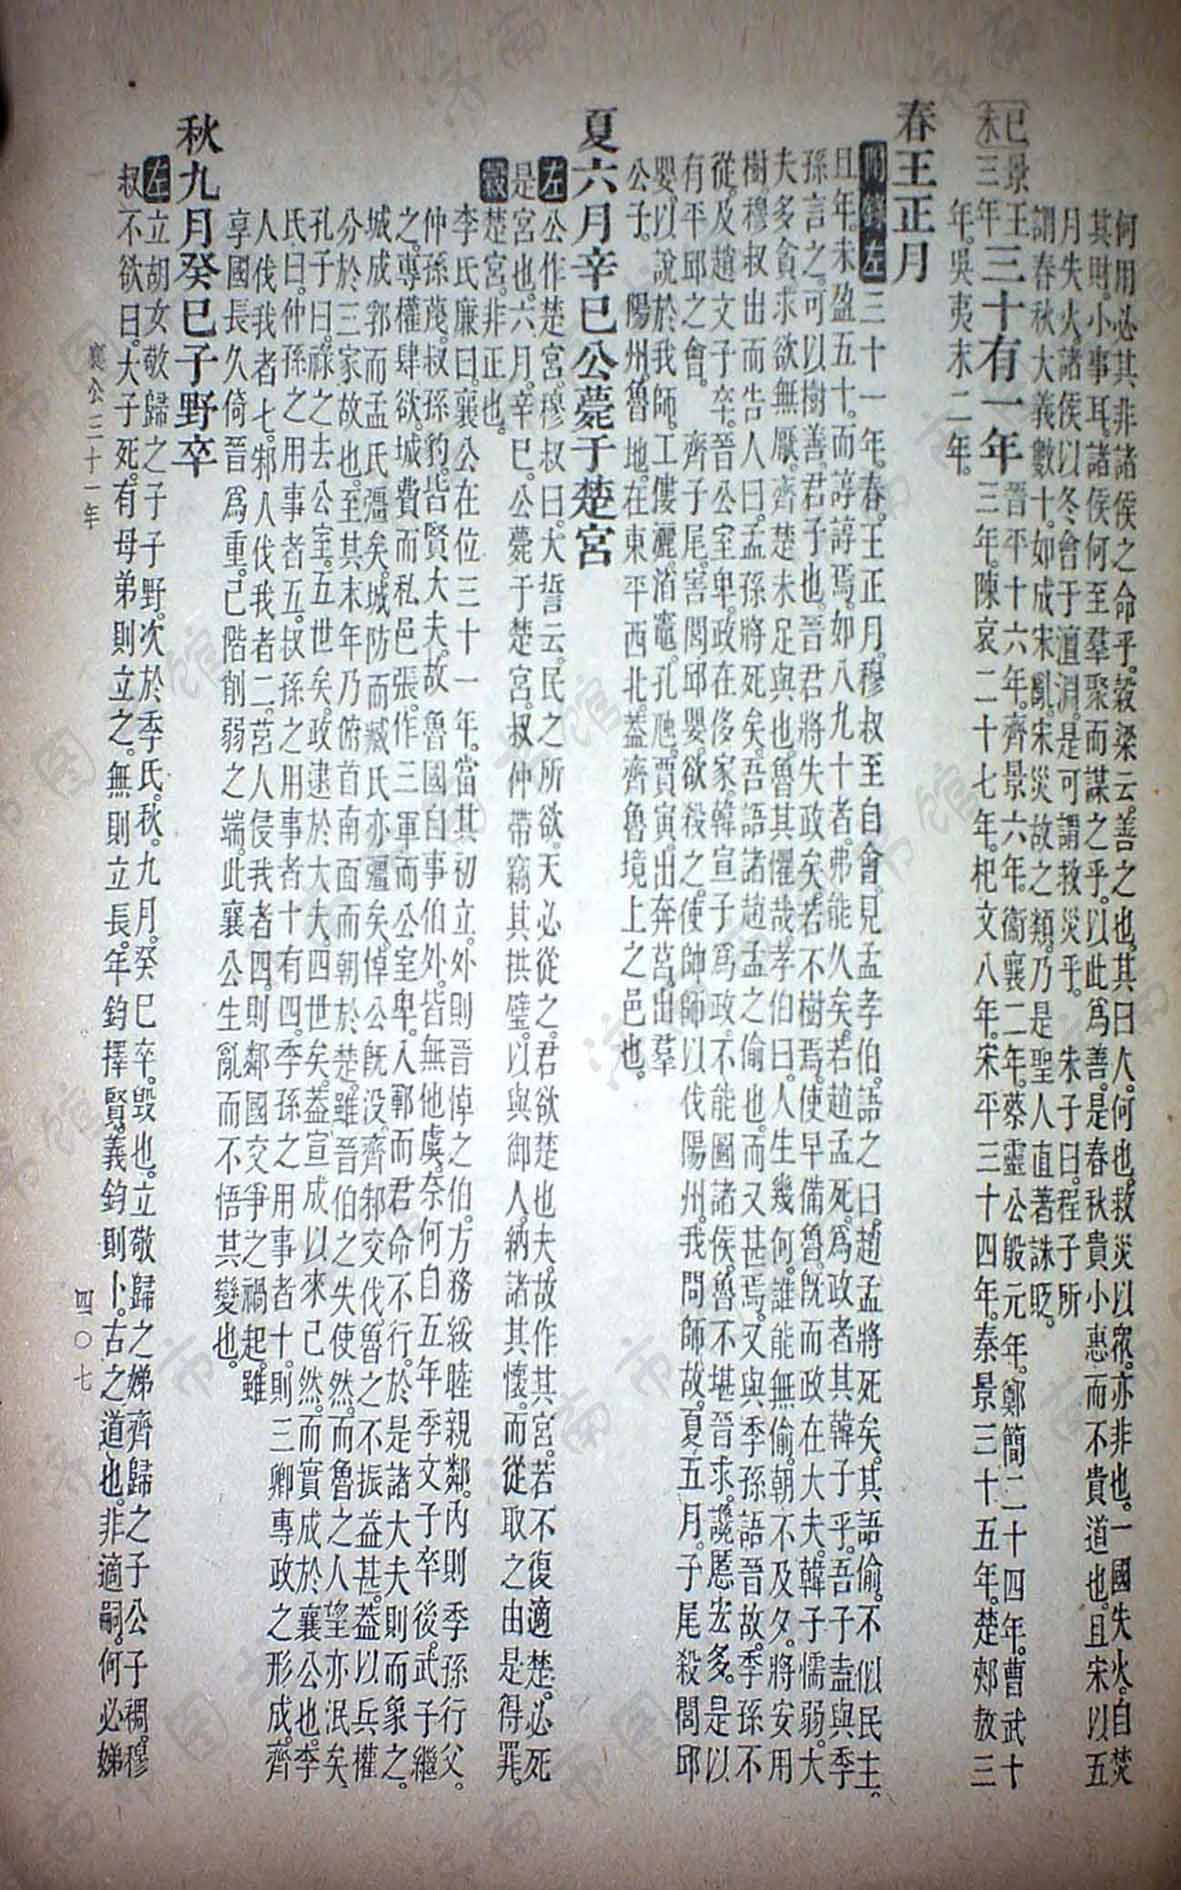 何用必其非諸侯之命乎。穀梁云。善之也。其曰人。何也。救災以衆。亦非也。一國失火。自焚
其財。小事耳。諸侯何至羣聚而謀之乎。以此爲善。是春秋貴小惠而不貴道也。且宋以五
月失火。諸侯以冬會于澶淵。是可謂救災乎。 朱子曰。程子所
謂春秋大義數十。如成宋亂。宋災故之類。乃是聖人直著誅貶。
己未 景王三年 三十有一年 晉平十六年。齊景六年。衞襄二年。蔡靈公般元年。鄭簡二十四年。曹武十
三年。陳哀二十七年。杞文八年。宋平三十四年。秦景三十五年。楚郟敖三
年。吳夷末二年。
春王正月
附錄 左 三十一年。春。王正月。穆叔至自會。見孟孝伯。語之曰。趙孟將死矣。其語偷。不似民主。
且年未盈五十。而諄諄焉。如八九十者。弗能久矣。若趙孟死。爲政者其韓子乎。吾子盍與季
孫言之。可以樹善。君子也。晉君將失政矣。若不樹焉。使早備魯。旣而政在大夫。韓子懦弱。大
夫多貪。求欲無厭。齊楚未足與也。魯其懼哉。孝伯曰。人生幾何。誰能無偷。朝不及夕。將安用
樹。穆叔出而告人曰。孟孫將死矣。吾語諸趙孟之偷也。而又甚焉。又與季孫語晉故。季孫不
從。及趙文子卒。晉公室卑。政在侈家。韓宣子爲政。不能圖諸侯。魯不堪晉求。讒慝宏多。是以
有平邱之會。 齊子尾。害閭邱嬰。欲殺之。使帥師以伐陽州。我問師故。夏五月。子尾殺閭邱
嬰。以說於我師。工僂灑。渻竈。孔虺。賈寅。出奔莒。出羣
公子。 陽州魯地。在東平西北。蓋齊魯境上之邑也。
夏六月辛巳公薨于楚宮
左 公作楚宮。穆叔曰。大誓云。民之所欲。天必從之。君欲楚也夫。故作其宮。若不復適楚。必死
是宮也。六月。辛巳。公薨于楚宮。叔仲帶竊其拱璧。以與御人。納諸其懷。而從取之。由是得罪。
穀 楚宮。非正也。
李氏廉曰。襄公在位三十一年。當其初立。外則晉悼之伯。方務綏睦親鄰。內則季孫行父。
仲孫蔑。叔孫豹。皆賢大夫。故魯國自事伯外。皆無他虞。奈何自五年季文子卒後。武子繼
之。專權肆欲。城費而私邑張。作三軍而公室卑。入鄆而君命不行。於是諸大夫則而象之。
城成郛而孟氏彊矣。城防而臧氏亦彊矣。悼公旣沒。齊邾交伐。魯之不振益甚。蓋以兵權
分於三家故也。至其末年。乃俯首南面而朝於楚。雖晉伯之失使然。而魯之人望亦泯矣。
孔子曰。祿之去公室。五世矣。政逮於大夫。四世矣。蓋宣成以來已然。而實成於襄公也。季
氏曰。仲孫之用事者五。叔孫之用事者十有四。季孫之用事者十。則三卿專政之形成。齊
人伐我者七。邾人伐我者二。莒人侵我者四。則鄰國交爭之禍起。雖
享國長久。倚晉爲重。已階削弱之端。此襄公生亂而不悟其變也。
秋九月癸巳子野卒
左 立胡女敬歸之子子野。次於季氏。秋。九月。癸巳卒。毀也。立敬歸之娣齊歸之子公子裯。穆
叔不欲。曰。大子死。有母弟則立之。無則立長。年鈞擇賢。義鈞則卜。古之道也。非適嗣。何必娣
襄公三十一年
四〇七